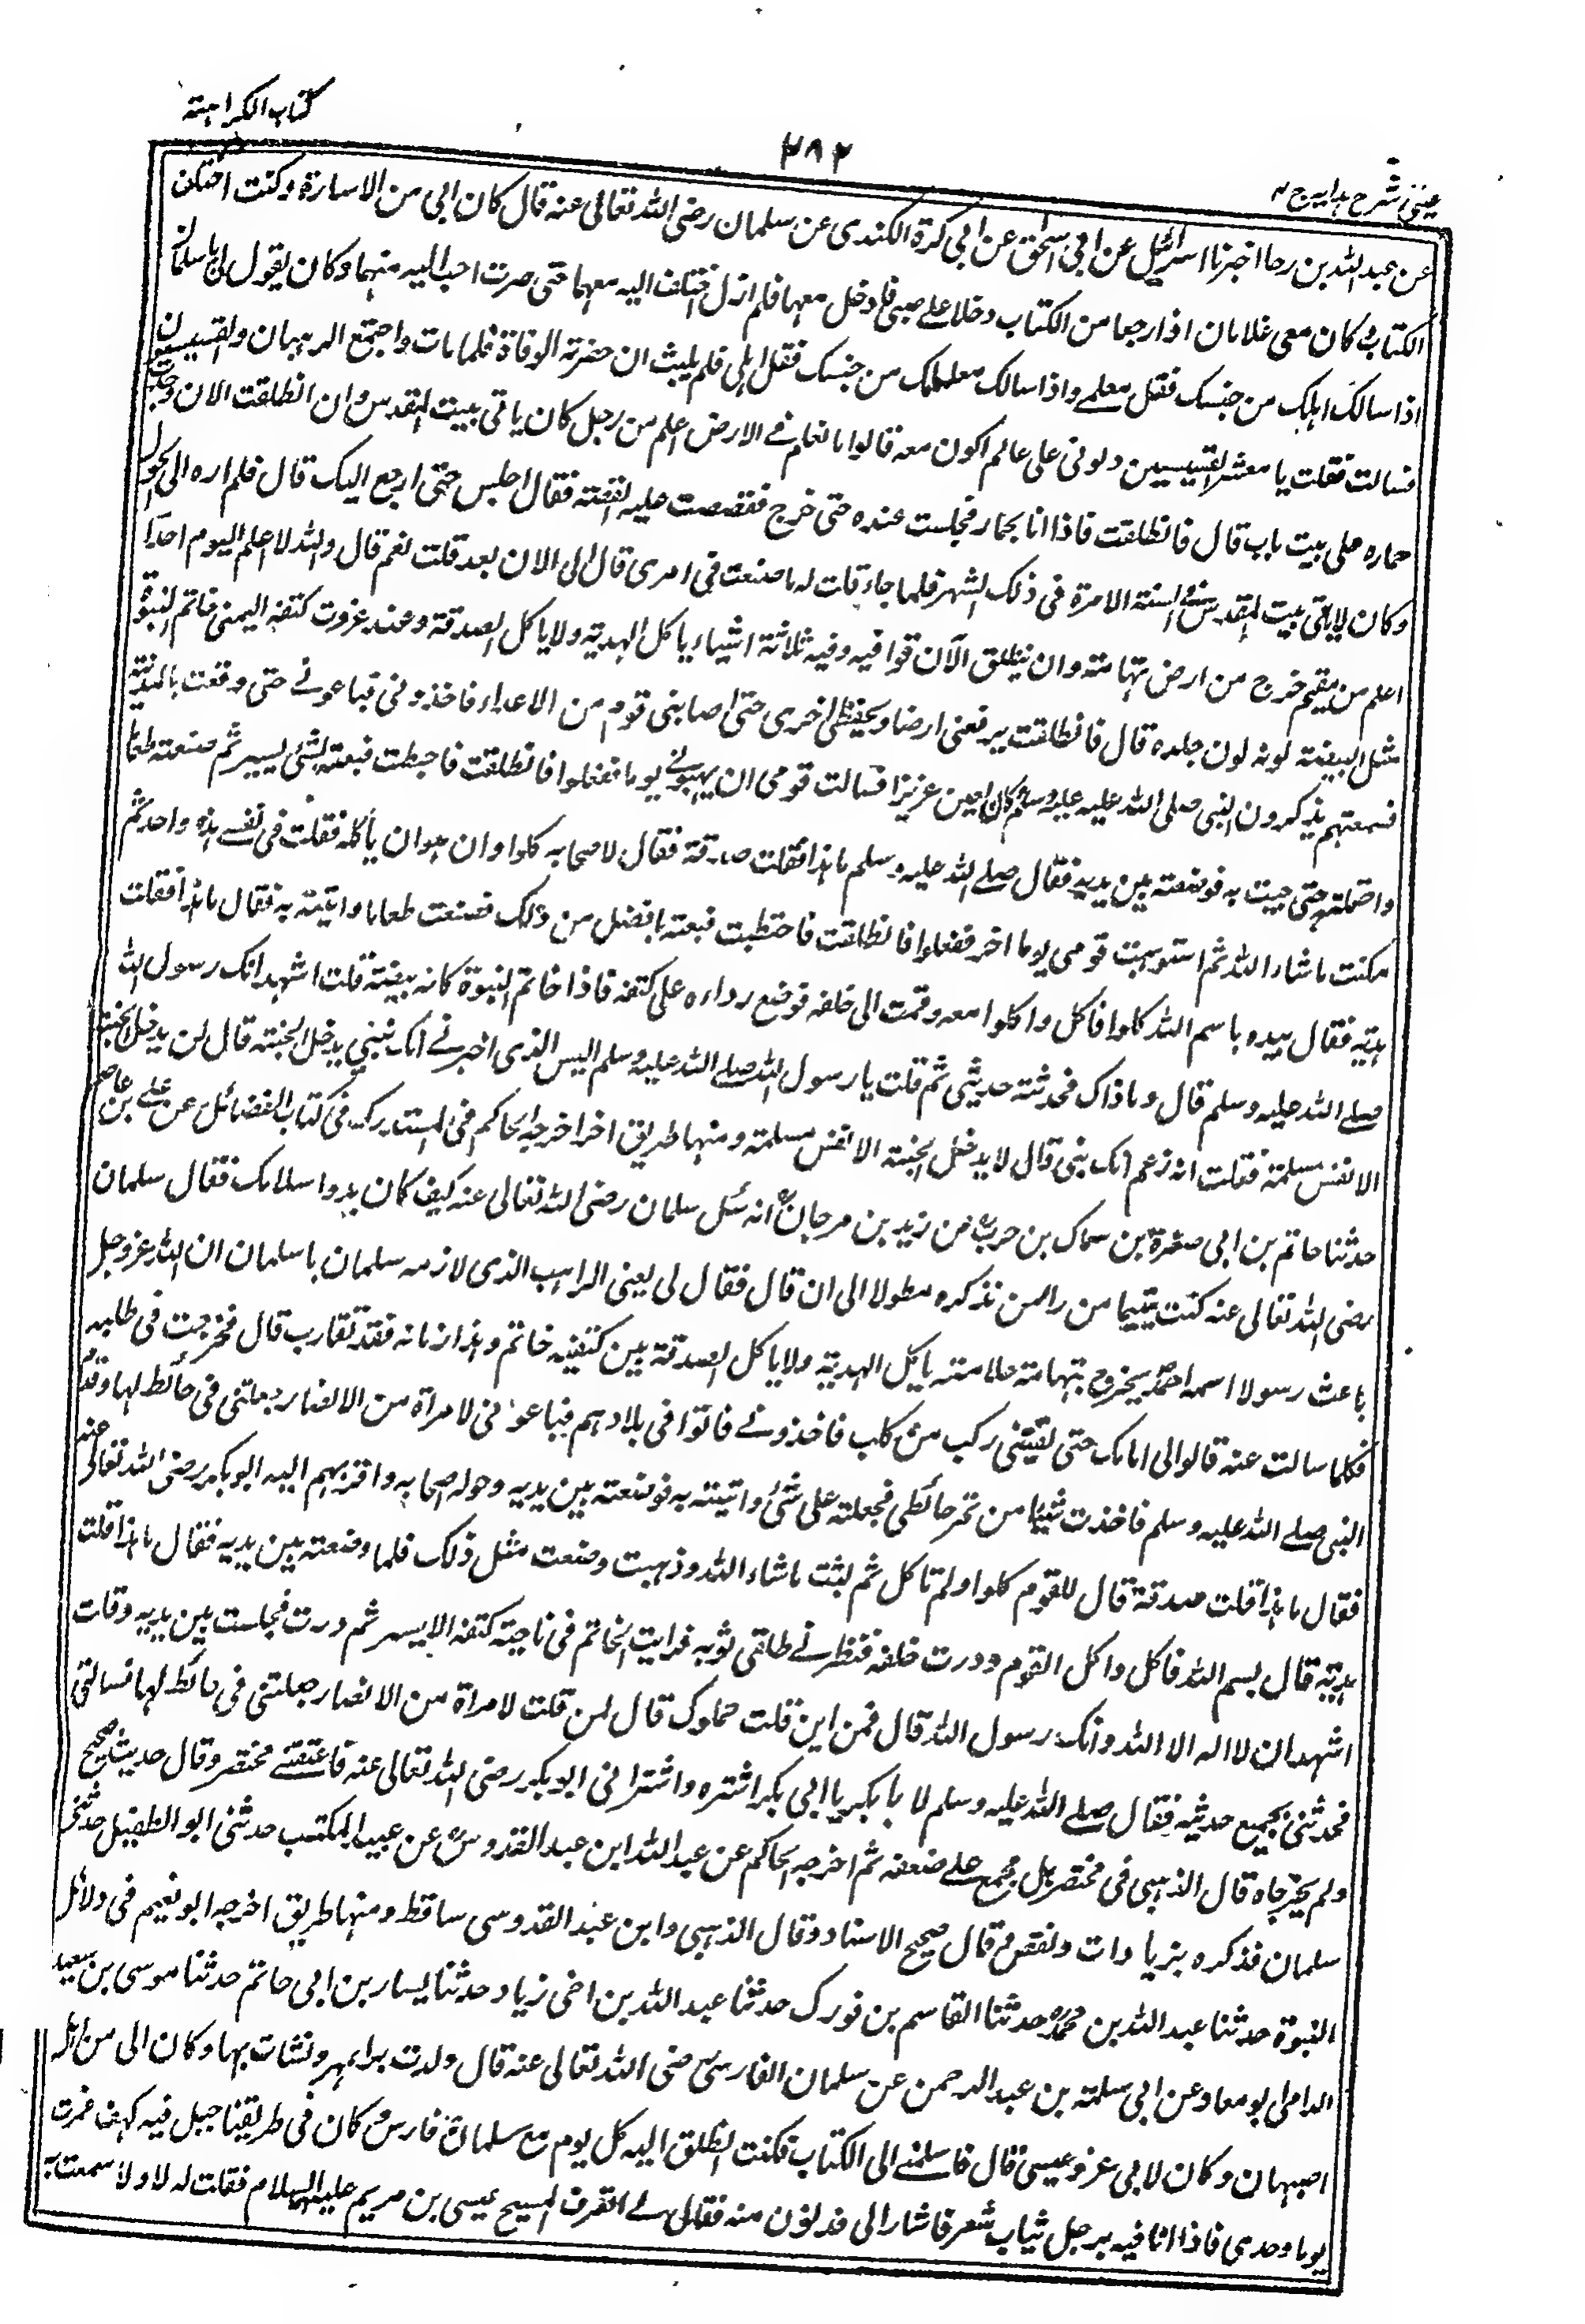 كتاب الكراهية
٢٨٢
عينى شرح هدايه ج ٤
عن عبد الله بن رجا اخبرنا اسرائيل عن ابى اسحق عن ابى كرة الكندى عن سلمان رضى الله تعالى عنه قال كان ابى من الاساورة وكنت اختلف
الكتاب وكان معى غلامان اذا رجعا من الكتاب دخلا على صبى فادخل معهما فلم ازل اختلف اليه معهما حتى صرت احب اليه منهما وكان يقول لى يا سلمان
اذا سالك اهلك من حبسك فقل معلمى واذا سالك معلمك من حبسك فقل اهلى فلم يلبث ان حضرته الوفاة فلما مات واجتمع الرهبان والقسيسون
فسالت فقلت يا معشر القسيسين دلونى على عالم اكون معه قالوا ما نعلم فى الارض اعلم من رجل كان ياتى بيت المقدس وان انطلقت الان وجدت
حماره على بيت باب قال فانطلقت فاذا انا بحمار فجلست عنده حتى خرج فقصصت عليه القصة فقال اجلس حتى ارجع اليك قال فلم اره الى الحول
وكان لا ياتى بيت المقدس فى السنة الا مرة فى ذلك الشهر فلما جاء قلت له ما صنعت فى امرى قال لى الان بعد قلت نعم قال والله لا اعلم اليوم احدا
اعلم من يتيم خرج من ارض تهامة وان تنطلق الآن توافيه وفيه ثلاثة اشياء ياكل الهدية ولا ياكل الصدقة وعند غزوت كتفه اليمنى خاتم النبوة
مثل البيضة لونه لون جلده قال فانطلقت يرفعنى ارضا ويخفضنى اخرى حتى اصابنى قوم من الاعداء فاخذونى فباعونى حتى وقعت بالمدينة
فسمعتهم يذكرون النبى صلى الله عليه وسلم وكان العين عزيزا فسالت قومى ان يهبونى يوما ففعلوا فانطلقت فاحتطبت فبعته بشئ يسير ثم صنعته طعاما
واحتملته حتى جيت به فوضعته بين يديه فقال صلى الله عليه وسلم ما هذا فقلت صدقة فقال لاصحابه كلوا وابى هو ان ياكله فقلت فى نفسى هذه واحدة ثم
مكثت ما شاء الله ثم استوهبت قومى يوما اخر ففعلوا فانطلقت فاحتطبت فبعته بافضل من ذلك فصنعت طعاما واتيته به فقال ما هذا فقلت
هدية فقال بيده باسم الله كلوا فاكل واكلوا معه وقمت الى خلفه فوضع رداءه على كتفه فاذا خاتم النبوة كانه بيضة قلت اشهد انك رسول الله
صلى الله عليه وسلم قال وما ذاك فحدثته حديثى ثم قلت يا رسول الله صلى الله عليه وسلم اليس الذى اخبرنى انك نبى يدخل الجنة قال لن يدخل الجنة
الا نفس مسلمة فقلت انه زعم انك نبى قال لا يدخل الجنة الا نفس مسلمة ومنها طريق اخر اخرجه الحاكم فى المستدرك فى كتاب الفضائل عن على بن عاصم
حدثنا حاتم بن ابى صغرة بن سماك بن حرب عن زيد بن مرجان انه سئل سلمان رضى الله تعالى عنه كيف كان بدو اسلامك فقال سلمان
رضى الله تعالى عنه كنت يتيما من رامهرمز نذكره مطولا الى ان قال فقال لى يعنى الراهب الذى لازمه سلمان يا سلمان ان الله عز وجل
باعث رسولا اسمه احمد يخرج بتهامة علامته ياكل الهدية ولا ياكل الصدقة بين كتفيه خاتم وهذا زمانه فقد تقارب قال فخرجت فى طلبه
فكلما سالت عنه قالوا لى امامك حتى لقينى ركب من كلب فاخذونى فاتوا فى بلادهم فباعونى لامراة من الانصار جعلتنى فى حائط لها وقدم
النبى صلى الله عليه وسلم فاخذت شيئا من تمر حائطى فجعلته على شئ واتيته به فوضعته بين يديه وحوله اصحابه واقربهم اليه ابو بكر رضى الله تعالى عنه
فقال ما هذا قلت صدقة قال للقوم كلوا ولم تاكل ثم لبثت ما شاء الله وذهبت وصنعت مثل ذلك فلما وضعته بين يديه فقال ما هذا قلت
هدية قال بسم الله فاكل واكل القوم ودرت خلفه فنظر لى طالقى ثوبه فرايت الخاتم فى ناحية كتفه الايسر ثم درت فجلست بين يديه وقلت
اشهد ان لا اله الا الله وانك رسول الله قال فمن اين قلت مملوك قال لمن قلت لامراة من الانصار جعلتنى فى حائط لها فسالنى
فحدثنى بجميع حديثه فقال صلى الله عليه وسلم لابا بكر يا ابى بكر اشتره واشترانى ابو بكر رضى الله تعالى عنه فاعتقنى مختصر وقال حديث صحيح
ولم يخرجاه قال الذهبى فى مختصر بل مجمع على ضعفه ثم اخرجه الحاكم عن عبد الله ابن عبد القدوس عن عبيد المكتب حدثنى ابو الطفيل حدثنى
سلمان فذكره بزيادات ونقص قال صحيح الاسناد وقال الذهبى وابن عبد القدوسى ساقط ومنها طريق اخرجه ابو نعيم فى دلائل
النبوة حدثنا عبد الله بن محمد حدثنا القاسم بن فورك حدثنا عبد الله بن اخى زياد حدثنا يسار بن ابى حاتم حدثنا موسى بن سعيد
الدامرى ابو معاو عن ابى سلمة بن عبد الرحمن عن سلمان الفارسى رضى الله تعالى عنه قال ولدت برامهر ونشات بها وكان ابى من اهل
اصبهان وكان لابى عز وعيسى قال فاسلمنى الى الكتاب فكنت انطلق اليه كل يوم مع سلمان فارس كان فى طريقنا جبل فيه كهف فمرت
يوما وحدى فاذا انا فيه برجل ثياب شعر فاشار الى فدنوت منه فقال لى اتعرف المسيح عيسى بن مريم عليه السلام فقلت له لا ولا سمعت به